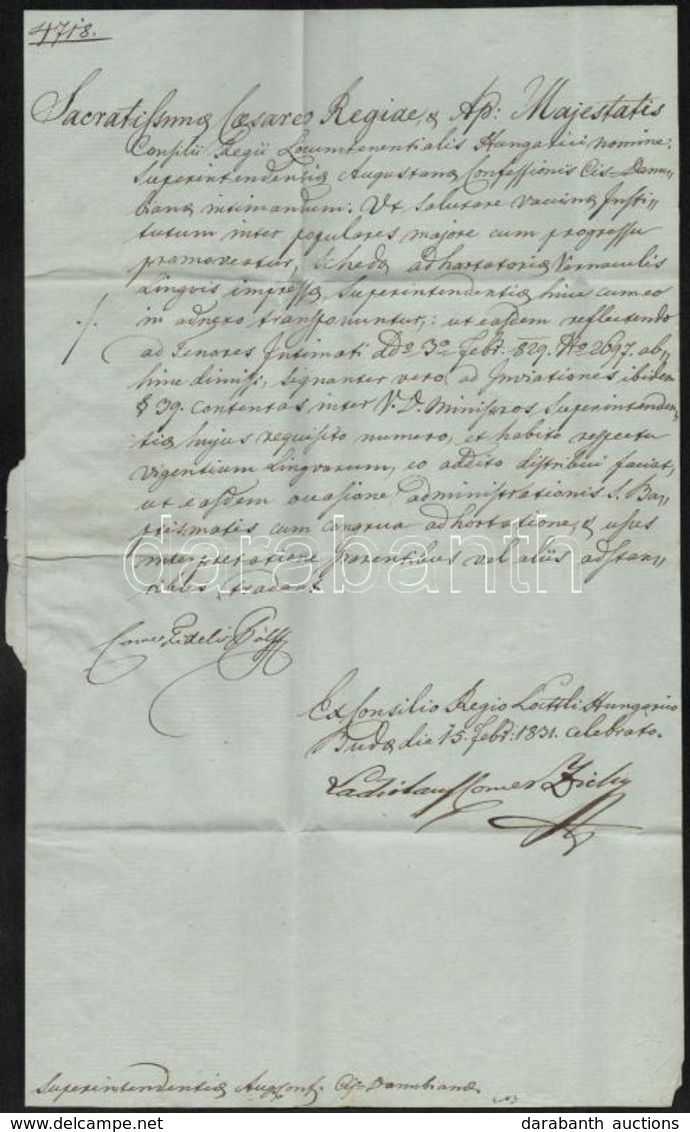 4718.
Sacratissimae Caesareo Regiae, & Ap: Majestatis
Consilii Regii Locumtenentialis Hungarici nomine:
Superintendentiae Augustanae Confessionis Cis-Danu„
bianae intimandum: Ut salutare vaccinae Insti„
tutum inter populares majore cum progressu
promoveatur, schedae adhortatoriae Vernaculis
Lingvis impressae, Superintendentiae hinc cum eo
in adnexo transponuntur,: ut easdem reflectendo
./.
ad Tenores Intimati ddo 3o Febr: 829. No 2697. ab„
hinc dimissi, signanter vero ad Inviationes ibidem
§ 39. contentas inter V. D. Ministros Superintenden„
tiae hujus requisito numero, et habito respectu
vigentium Lingvarum, eo addito distribui faciat,
ut easdem occasione administrationis S. Bap„
tismatis cum congrua adhortatione, & usus
interpretatione Parentibus vel aliis adstan„
tibus tradant.
Comes Fidelis Pálffy
Ex Consilio Regio Locttli Hungarico
Budae die 15. Febr: 1831. celebrato.
Ladislaus Comes Zichy
Superintendentiae Aug. Conf. Cis-Danubianae
darabanth
darabanth auctions